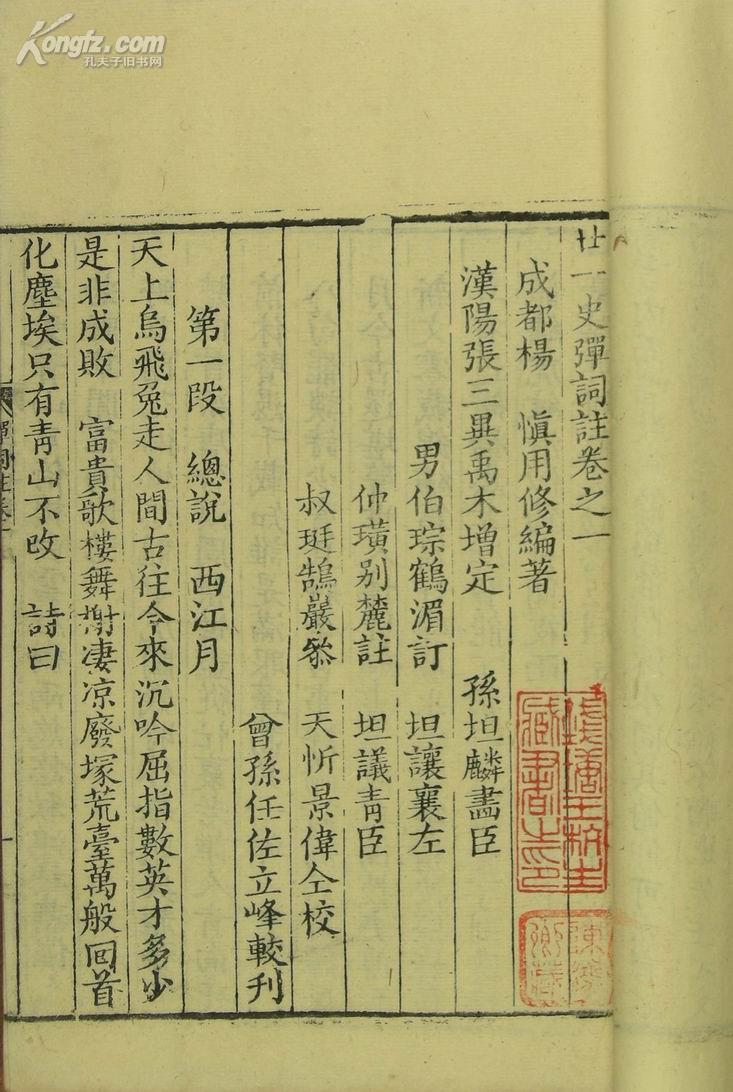 廿一史彈詞註卷之一
成都楊　慎用修編著
漢陽張三異禹木增定　孫坦麟畵臣
男伯琮鶴湄訂　坦讓襄左
仲璜别麓註　坦議青臣
叔珽鵠巖叅　天忻景偉仝校
曾孫任佐立峰較刊
第一段　總說　西江月
天上烏飛兔走人間古往今來沉吟屈指數英才多少
是非成敗　富貴歌樓舞榭凄凉廢塚荒臺萬般回首
化塵埃只有青山不改　詩曰
彈詞註卷一
藏書之印
Kongfz.com
孔夫子旧书网